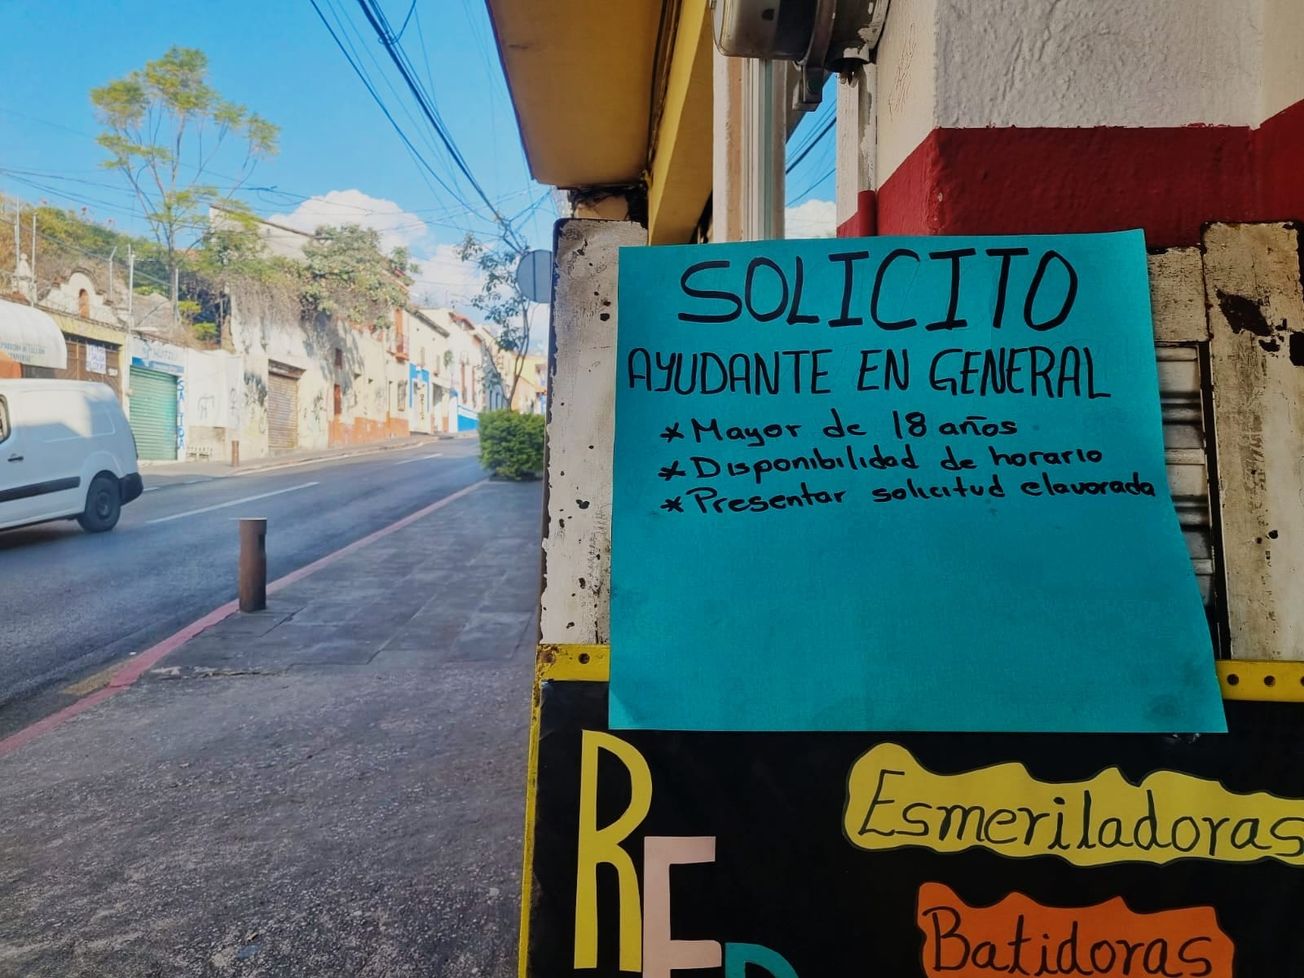 SOLICITO
AYUDANTE EN GENERAL
* Mayor de 18 años
* Disponibilidad de horario
* Presentar solicitud elavorada
Esmeriladoras
Batidoras